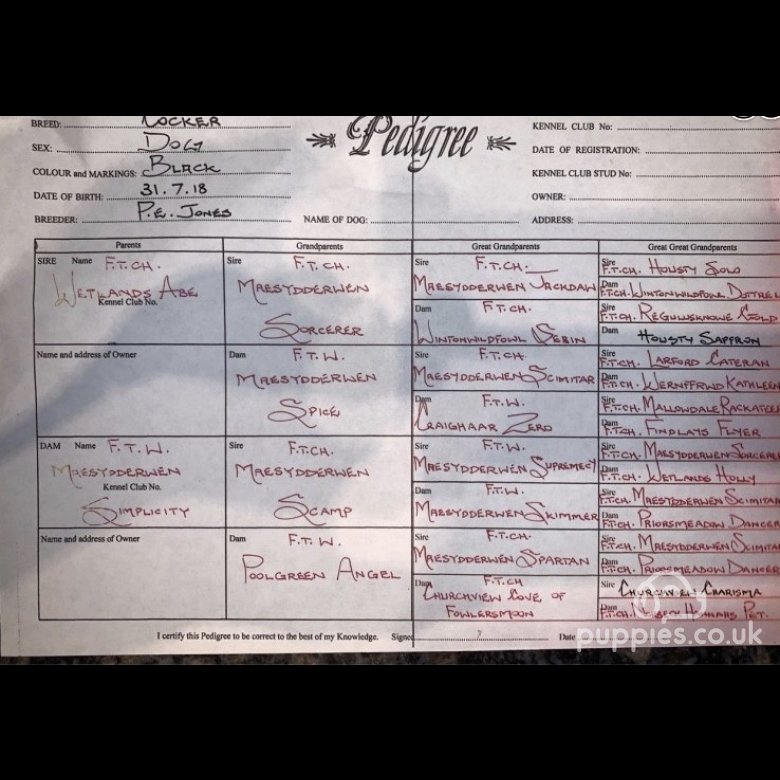 BREED: COCKER
SEX: DOG
COLOUR and MARKINGS: BLACK
DATE OF BIRTH: 31.7.18
BREEDER: P.E. JONES
Pedigree
NAME OF DOG:
KENNEL CLUB No:
DATE OF REGISTRATION:
KENNEL CLUB STUD No:
OWNER:
ADDRESS:
Parents Grandparents Great Grandparents Great Great Grandparents
SIRE Name F.T.CH.
WETLANDS ABE
Kennel Club No.
Name and address of Owner
DAM Name F.T.W.
MAESYDDERWEN
Kennel Club No.
SIMPLICITY
Name and address of Owner
Sire F.T.CH.
MAESYDDERWEN
SORCERER
Dam F.T.W.
MAESYDDERWEN
SPICE
Sire F.T.CH.
MAESYDDERWEN
SCAMP
Dam F.T.W.
POOLGREEN ANGEL
Sire F.T.CH.
MAESYDDERWEN JACKDAW
Dam F.T.CH.
WINTONWILDFOWL SERIN
Sire F.T.CH.
MAESYDDERWEN SCIMITAR
Dam F.T.W.
CRAIGHAAR ZERO
Sire F.T.W.
MAESYDDERWEN SUPREMECY
Dam F.T.W.
MAESYDDERWEN SKIMMER
Sire F.T.CH.
MAESYDDERWEN SPARTAN
Dam F.T.CH
CHURCHVIEW COVE OF
FOWLERSMOON
Sire
F.T.CH. HOUSTY SOLO
Dam
F.T.CH. WINTONWILDFOWL DOTTREL
Sire
F.T.CH. REGULUSKNOWE GOLD
Dam HOUSTY SAFFRON
Sire
F.T.CH. LARFORD CATERAN
Dam
F.T.CH. WERNFFRWD KATHLEEN
Sire
F.T.CH. MALLOWDALE RACKATEER
Dam
F.T.CH. FINDLAYS FLYER
Sire
F.T.CH. MAESYDDERWEN SORCERER
Dam
F.T.CH. WETLANDS HOLLY
Sire
F.T.CH. MAESYDDERWEN SCIMITAR
Dam
F.T.CH. PRIORSMEADOW DANCER
Sire
F.T.CH. MAESYDDERWEN SCIMITAR
Dam
F.T.CH. PRIORSMEADOW DANCER
Sire CHURCHVIEW CHARISMA
Dam
F.T.CH. PET.
I certify this Pedigree to be correct to the best of my Knowledge. Signed Date
puppies.co.uk